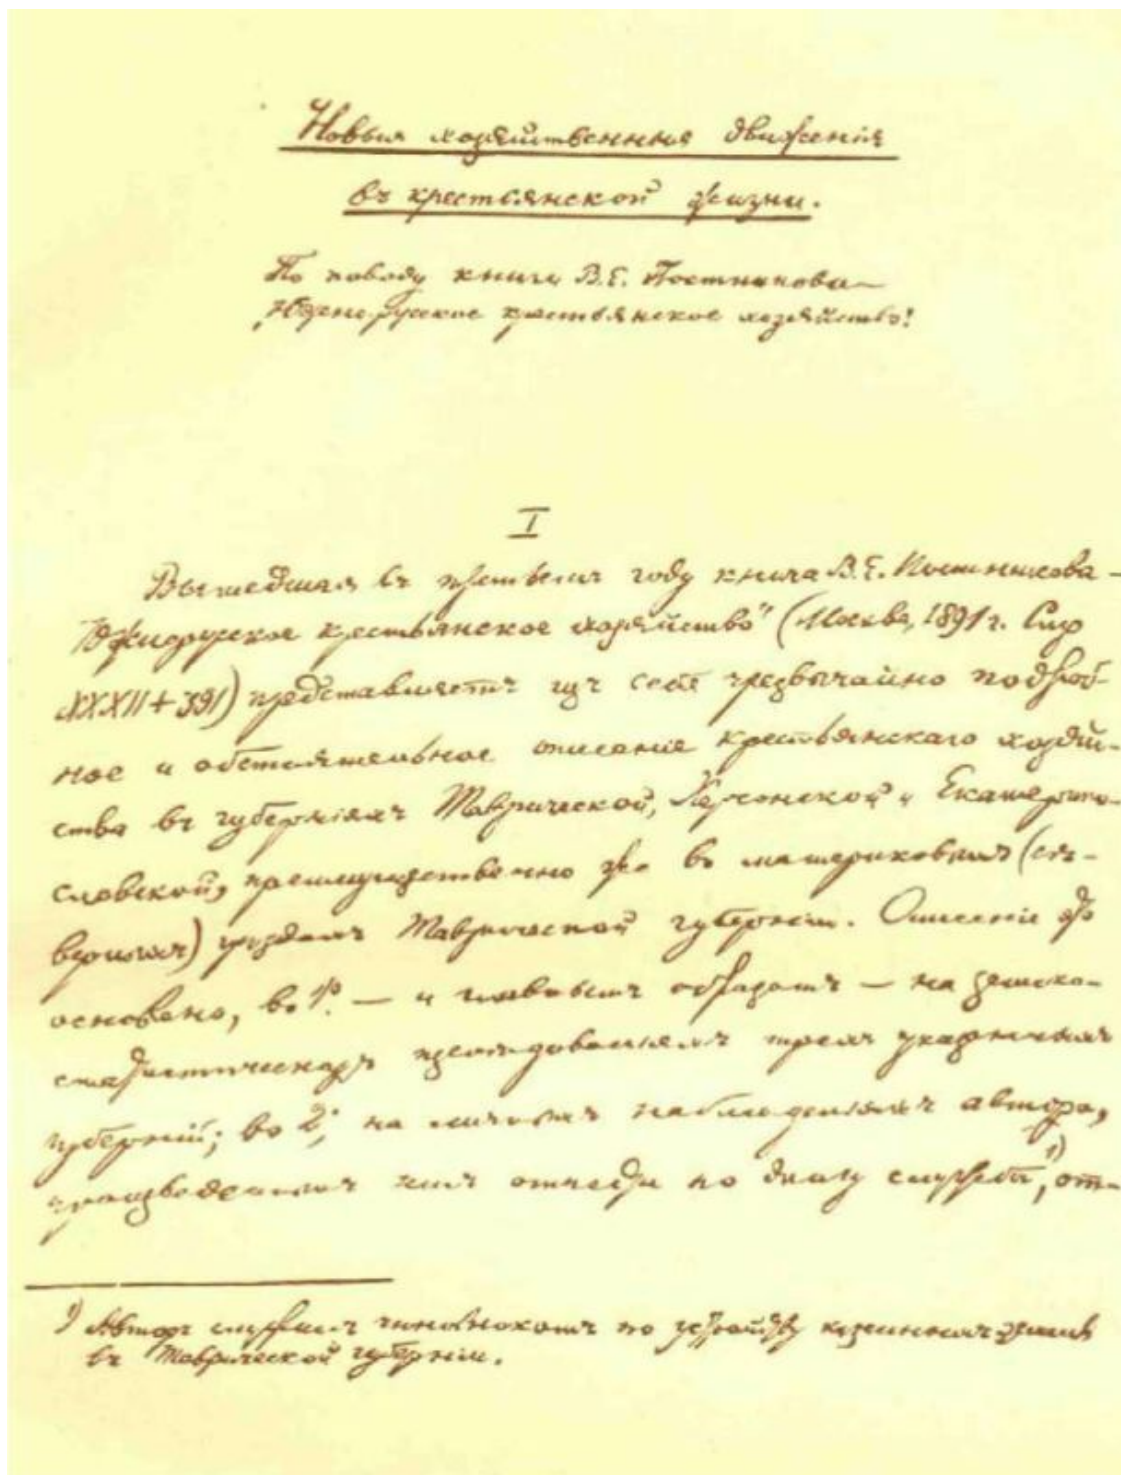 Новыя хозяйственныя движенія
въ крестьянской жизни.
По поводу книги В.Е. Постникова —
„Южно-русское крестьянское хозяйство".
I
Вышедшая въ третьемъ году книга В.Е. Постникова —
„Южнорусское крестьянское хозяйство" (Москва, 1891 г. Стр
XXXII + 391) представляетъ изъ себя чрезвычайно подроб-
ное и обстоятельное описаніе крестьянскаго хозяй-
ства въ губерніяхъ Таврической, Херсонской и Екатерино-
славской, преимущественно же въ материковыхъ (сѣ-
верныхъ) уѣздахъ Таврической губерніи. Описаніе это
основано, во 1хъ. — и главнымъ образомъ — на земско-
статистическихъ изслѣдованіяхъ трехъ указанныхъ
губерній; во 2хъ, на личныхъ наблюденіяхъ автора,
произведенныхъ имъ отчасти по долгу службы 1), от-
1) Авторъ служилъ чиновникомъ по устройству казенныхъ земель
въ Таврической губерніи.